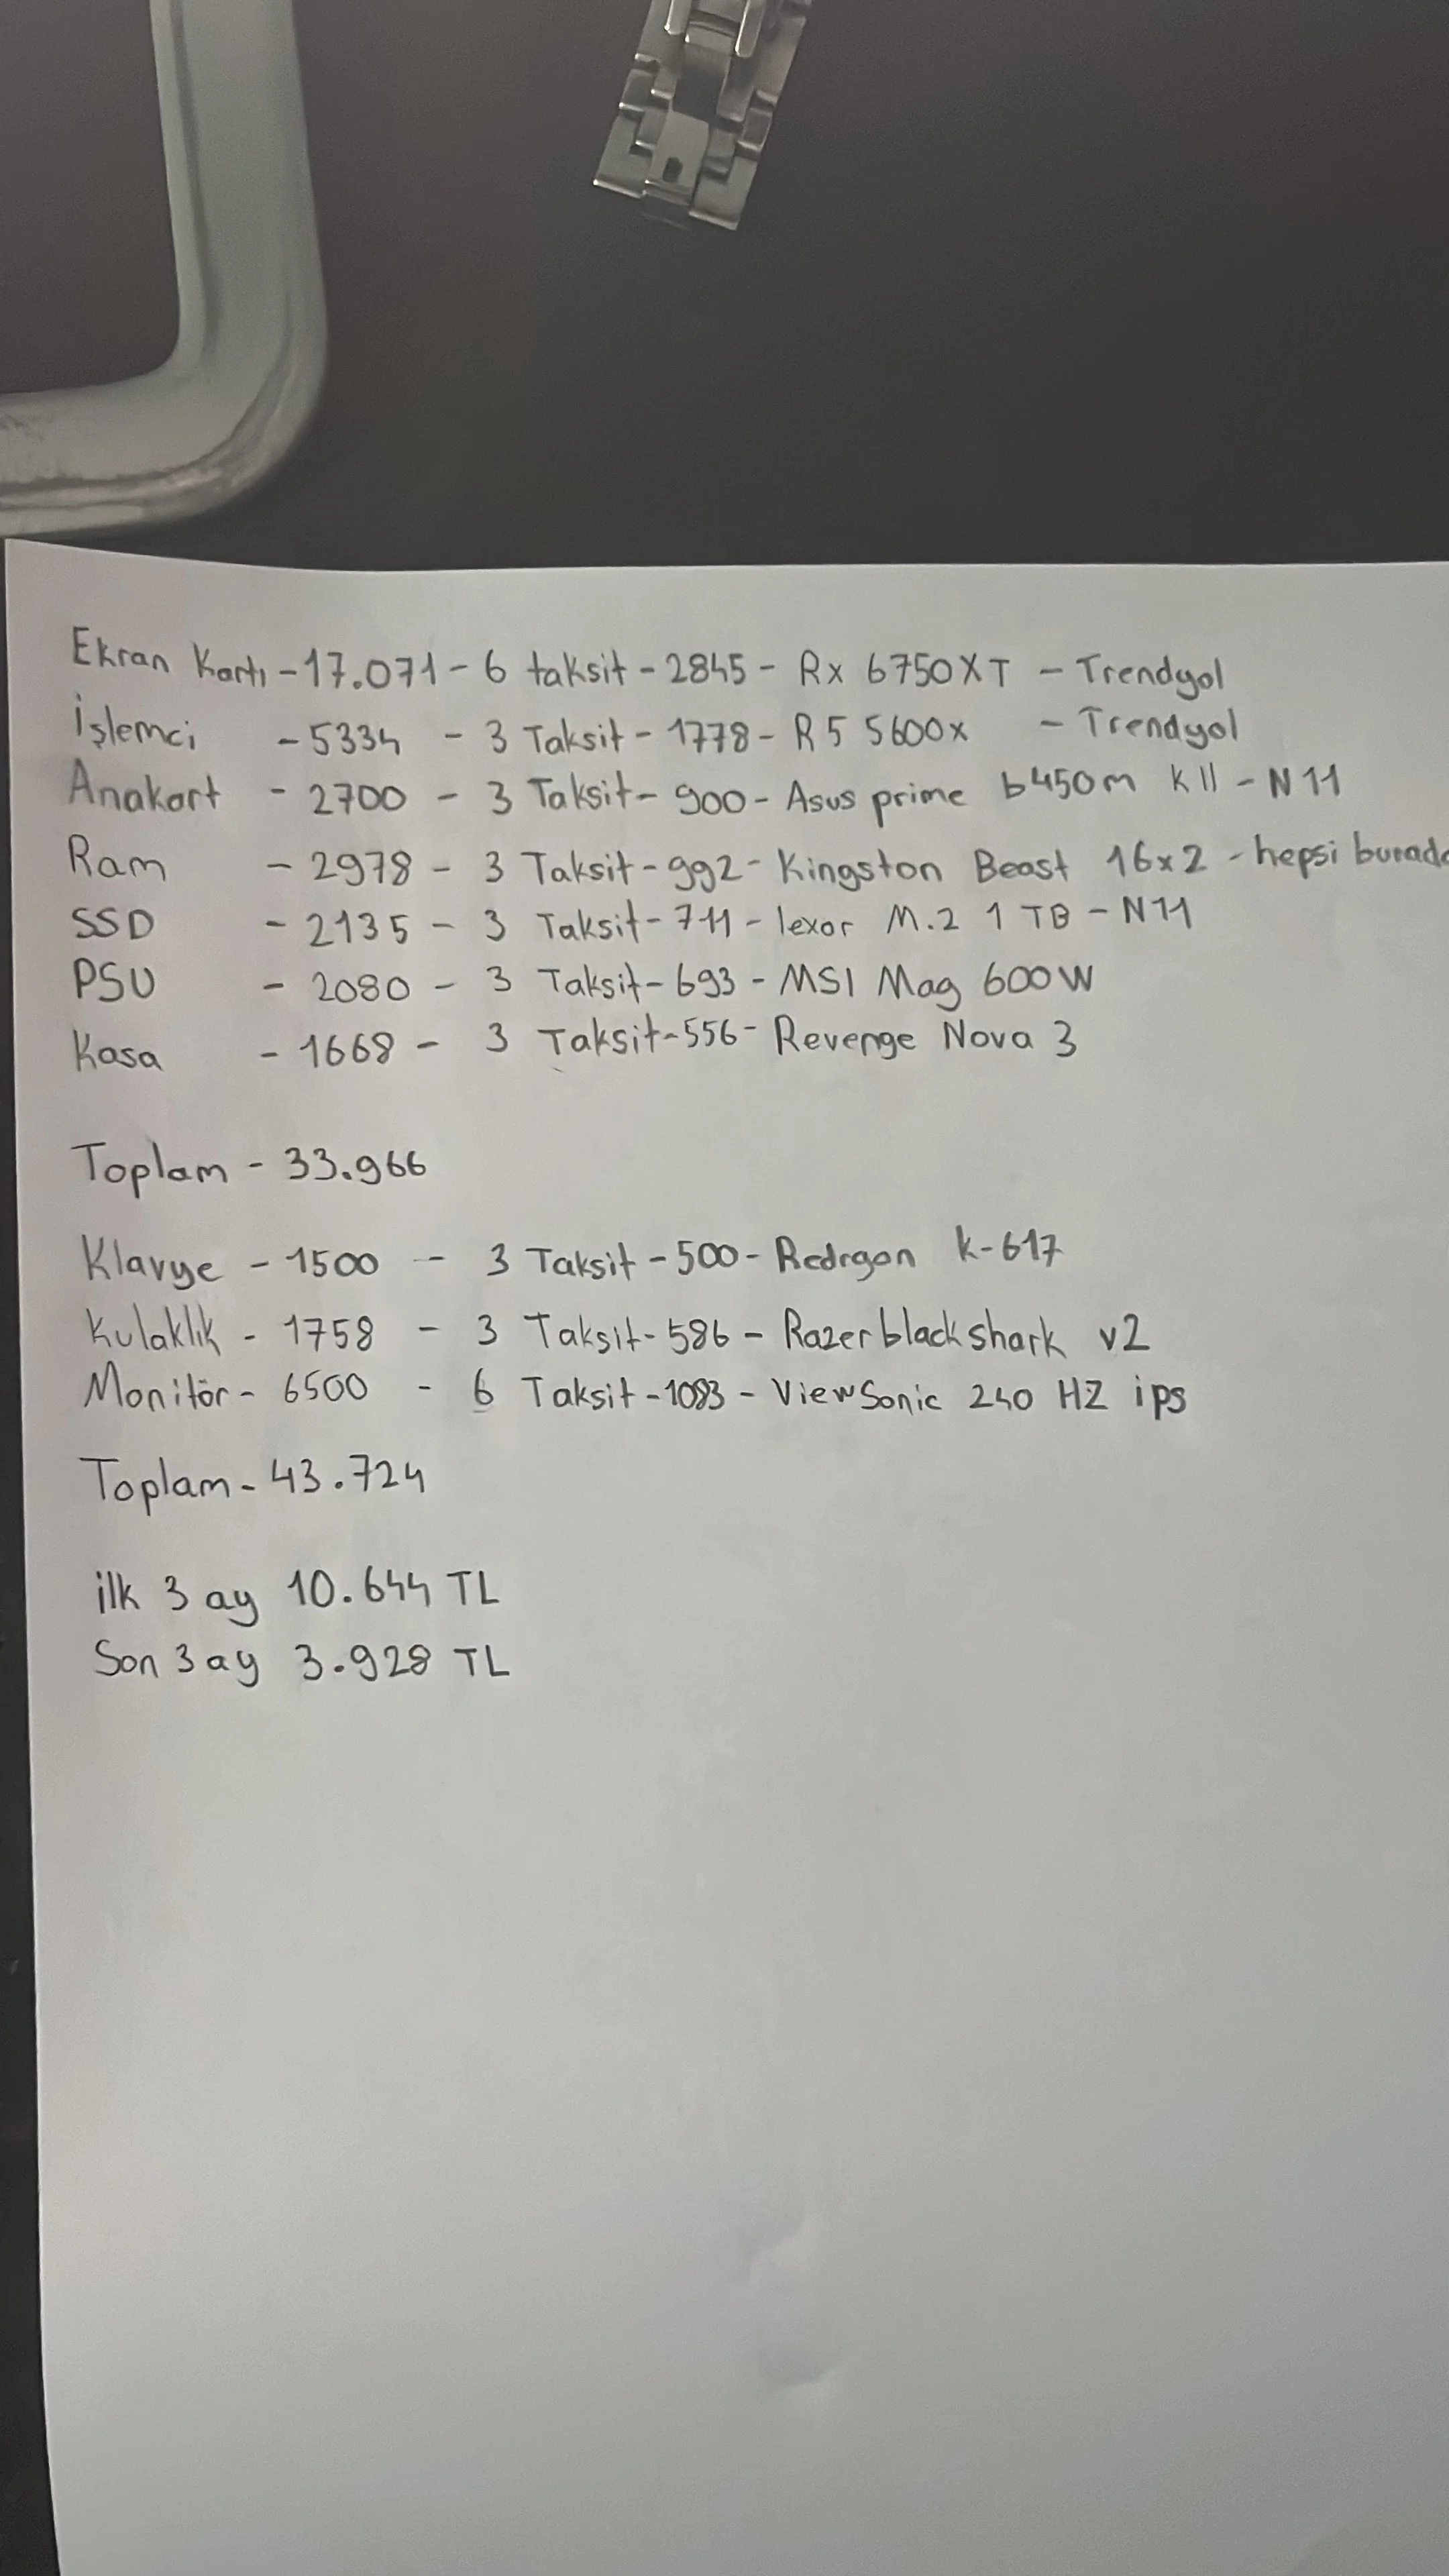 Ekran Kartı - 17.071 - 6 taksit - 2845 - Rx 6750XT - Trendyol
İşlemci - 5334 - 3 Taksit - 1778 - R5 5600x - Trendyol
Anakart - 2700 - 3 Taksit - 900 - Asus prime b450m k II - N11
Ram - 2978 - 3 Taksit - 992 - Kingston Beast 16x2 - hepsi burada
SSD - 2135 - 3 Taksit - 711 - lexar M.2 1 TB - N11
PSU - 2080 - 3 Taksit - 693 - MSI Mag 600W
Kasa - 1668 - 3 Taksit - 556 - Revenge Nova 3
Toplam - 33.966
Klavye - 1500 - 3 Taksit - 500 - Redrgon k-617
Kulaklık - 1758 - 3 Taksit - 586 - Razer blackshark v2
Monitör - 6500 - 6 Taksit - 1083 - ViewSonic 240 HZ ips
Toplam - 43.724
ilk 3 ay 10.644 TL
Son 3 ay 3.928 TL